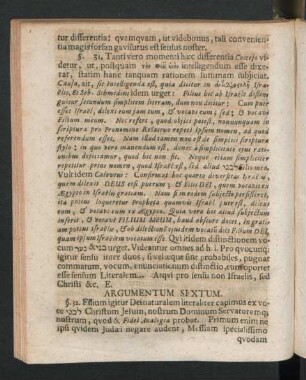 tur differentia: quemquam, ut videbimus, tali convenien-
tia magis forsan gavisurus esset sensus noster.
§. 31. Tanti vero momenti hæc differentia Cocceio vi-
detur, ut, postquam intelligendum esse dixe-
rat, statim hanc tanquam rationem summam subjiciat.
Causa, ait, sic intelligendi est, quia dicitur in Isra-
lis, & Seb. Schmidius idem urget: Filius hic ab Israele distin-
guitur secundum simplicem literam, dum non dicitur; Cum puer
esset Israël, dilexi eum jam tum, & vocavi eum; sed; & vocavi
Filium meum. Nec refert, quod objici posset, nonnunquam in
scriptura pro Pronomine Relativo repeti ipsum nomen, ad quod
referendum esset. Nam illud tamen non est de simplici scripturæ
stylo; in quo versamur hic
tionibus desicamus, quod hic non fit. Neque etiam simpliciter
repetitur prius nomen, quod Israël est, sed aliud, filium meum.
Vult idem Calovius: Confirmat hoc quarto diversitas Israelis
quem dilexit DEUS est puerum; & Filii DEI, quem vocavit ex
Ægypto Israelis gratiam. Nam si in eadem subjecto perstitisset,
ita potius loqueretur Propheta quamvis Israël puer sit, dilexi
eum, & vocavi eum ex Ægypto. Quia vero hic aliud subjectum
inserit, & vocavi FILIUM MEUM, haud obscure docet, in grati-
am potius Israelis, & ob dilectionem ejusdem vocasse Filium DEI,
quam ipsum Israëlem vocatum esse. Qvi itidem distinctionem vo-
cum בני & נער urget. Videantur omnes ad h. l. Pro qvocunq;
igitur sensu inter duos, si velæquesint probabiles, pugnat
commatum, vocum, enunciationum distinctio, eum oportet
esse sensum Literalem. Atqvi pro sensu non Israelis, sed
Christi &c. E.
ARGUMENTUM SEXTUM.
§. 32. Filium igitur Dei naturalem literaliter capimus ex vo-
ce Christum Jesum, nostrum Dominum Servatoremq;
nostrum, quod 6. Fidei Analogia probat. Primum enim ne
ipsi quidem Judæi negare audent, Messiam specialissimo
qvodam